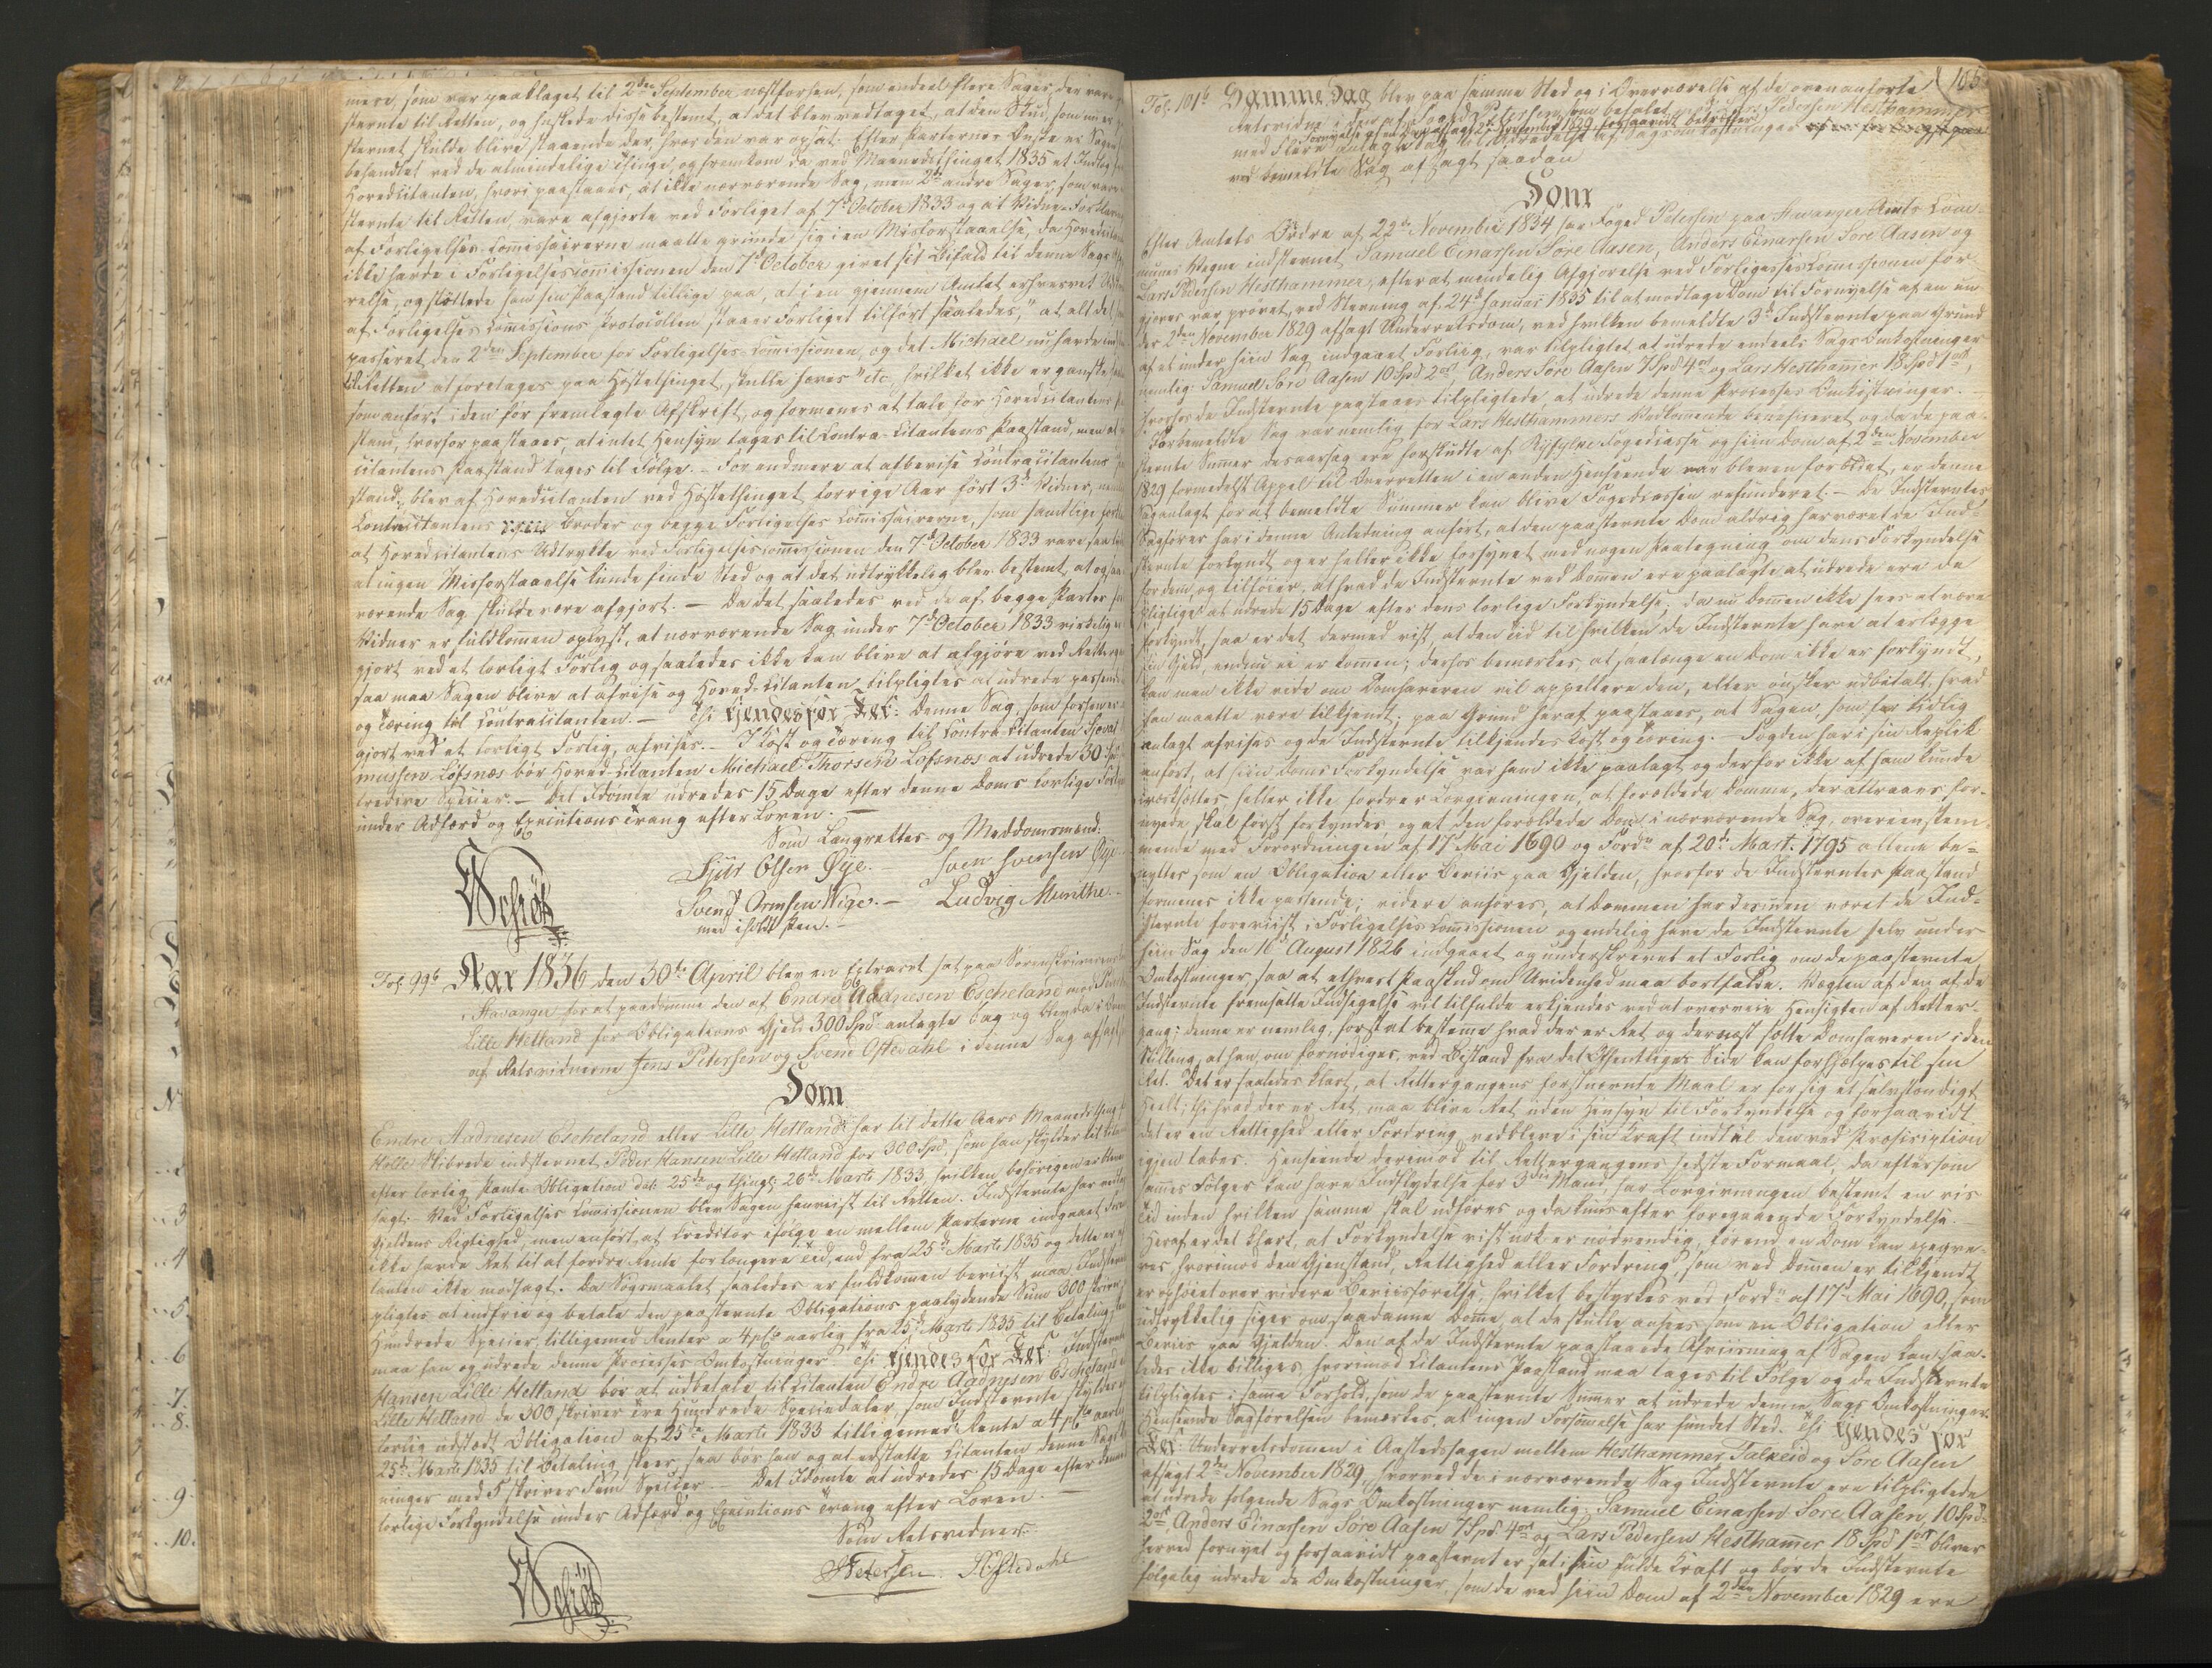 mere, som var paaklaget til 2den September næstforhen, som endeel flere Sager, der vare
sternte til Retten, og huskede disse bestemt, at det blev vedtaget, at den Skud, som var
sternet skulde blive staaende der, hvor den var opsat. Efter Parternes Ønske er Sagen
behandlet ved de almindelige Thinge, og fremkom da ved Maanedsthinget 1835 et Indlæg
Hovedcitanten, hvori paastaaes, at ikke nærværende Sag, men 2de andre Sager, som vare
sternte til Retten vare afgjorte ved Forliget af 7de October 1833 og at Vidne-Forklaring
af Forligelses-Commissairerne maatte grunde sig i en Misforstaaelse, da Hovedcitanten
ikke havde i Forligelsescommissionen den 7de October givet sit Bifald til denne Sags
relse, og støttede han sin Paastand tillige paa, at i en gjennem Amtet erhvervet
af Forligelses Commissions Protocollen staaer Forliget tilført saaledes, "at alt det
passeret den 2den September for Forligelses-Commissionen, og det Michael nu havde
til Retten at foretages paa Høstethinget, skulle hæves" etc, hvilket ikke er ganske
som anført i den før fremlagte Afskrift, og formenes at tale for Hovedcitantens
stand, hvorfor paastaaes, at intet Hensyn tages til Contra-Citantens Paastand, men at
citantens Paastand tages til Følge. - For endmere at afbevise Contracitantens
stand, blev af Hovedcitanten ved Høstethinget forrige Aar ført 3de Vidner, nemlig
Contracitantens Broder og begge Forligelses Commissairerne, som samtlige
at Hovedcitantens Udtrykte ved Forligelsescommissionen den 7de October 1833 vare saa
at ingen Misforstaaelse kunde finde Sted og at det udtrykkelig blev bestemt, at ogsaa
værende Sag skulde være afgjort. - Da det saaledes ved de af begge Parter
Vidner er fuldkommen oplyst, at nærværende Sag under 7de October 1833 virkelig
gjort ved et lovligt Forlig og saaledes ikke kan blive at afgjøre ved Rettergang
saa maa Sagen blive at afvise og Hoved-Citanten tilpligtes at udrede passende
og Tæring til Contracitanten. - Thi kjendes for Ret: Denne Sag, som forhen er
gjort ved et lovligt Forlig, afvises. - I Kost og Tæring til Contra-Citanten
mussen Løfsnæs bør Hoved-Citanten Michael Thorsen Løfsnæs at udrede 30
tredive Specier. - Det Idømte udredes 15 Dage efter denne Doms lovlige
under Adfærd og Executions Tvang efter Loven. -
Som Laugrettes- og Meddomsmænd:
Sjur Olsen Øye. - Sven Svensen Øye.
Svend Ormsen Wige. - Ludvig Munthe. -
med iholdt Pen. -
Fol. 99b Aar 1836 den 30te April blev en Extraret sat paa Sorenskriverens
i Stavanger for at paadømme den af Endre Aadnesen Escheland mod Peder
Lille Hetland for Obligations Gjeld 300 Spd anlagte Sag og blev da i
af Retsvidnerne Jens Petersen og Svend Oftedahl i denne Sag afsagt
Dom
Endre Aadnesen Escheland eller Lille Hetland har til dette Aars Maanedsthing
Helle Skibrede indsternet Peder Hansen Lille Hetland for 300 Spd, som han skylder til
efter lovlig Pante-Obligation dat: 25de og thingl: 26de Marts 1833, hvilken behørigen er
sagt. Ved Forligelses Commissionen blev Sagen henviist til Retten. Indsternte har
Gjeldens Rigtighed, men anført, at Creditor ifølge en mellem Parterne indgaaet
ikke havde Ret til at fordre Rente for længere Tid, end fra 25de Marts 1835 og dette er
tanten ikke modsagt. Da Søgsmaalet saaledes er fuldkommen beviist, maa Indsternte
pligtes at indfrie og betale den paasternte Obligations paalydende Sum 300 skriver
Hundrede Specier, tilligemed Renter a 4 pCt aarlig fra 25de Marts 1835 til Betaling
maa han og udrede denne Processes Omkostninger. Thi kjendes for Ret: Indsternte
Hansen Lille Hetland bør at udbetale til Citanten Endre Aadnesen Escheland
Lille Hetland de 300 skriver Tre Hundrede Speciedaler, som Indsternte skylder
lovlig udstædt Obligation af 25de Marts 1833 tilligemed Rente a 4 pCt aarlig
25de Marts 1835 til Betaling skeer, saa bør han og at erstatte Citanten denne Sags
ninger med 5 skriver Fem Specier - Det Idømte at udredes 15 Dage efter denne
lovlige Forkyndelse under Adfærd og Executions Tvang efter Loven. -
Som Retsvidner:
JPetersen. S. Oftedahl
105
Fol. 101b Samme Dag blev paa samme Sted og i Overværelse af de ovenanførte
Retsvidne i den af Foged Petersen som befalet Pedersen Hesthammer
med Flere anlagte Sag til
ved bemeldte Sag afsagt saadan
Dom
Efter Amtets Ordre af 22de November 1834 har Foged Petersen paa Stavanger Amts Com-
munes Vegne indsternet Samuel Einarsen Søre Aasen, Anders Einarsen Søre Aasen og
Lars Pedersen Hesthammer, efterat mindelig Afgjørelse ved Forligelsescommissionen for-
gjeves var prøvet, ved Sterning af 24de Januar 1835 til at modtage Dom til Fornyelse af en un-
der 2den November 1829 afsagt Underretsdom, ved hvilken bemeldte 3de Indsternte paa Grund
af et under hiin Sag indgaaet Forlig, var tilpligtet at udrede endeels Sags Omkostninger
nemlig: Samuel Søre Aasen 10 Spd 2 ort Anders Søre Aasen 7 Spd 4 ort og Lars Hesthammer 18 Spd 1 ort,
hvorhos de Indsternte paastaaes tilpligtede at udrede denne Processes Omkostninger. -
Forbemeldte Sag var nemlig for Lars Hesthammers Vedkommende beneficeret og da de paa-
sternte Summer desaarsag ere forskudte af Ryfylke Fogedcasse og hiin Dom af 2den November
1829 formedelst Appel til Overretten i en anden Henseende var bleven forældet, er denne
Sag anlagt for at bemeldte Summer kan blive Fogedcassen refunderet. - De Indsterntes
Sagfører har i denne Anledning anført, at den paasternte Dom aldrig har været de Ind-
sternte forkyndt og er heller ikke forsynet med nogen Paategning om dens Forkyndelse
for dem, og tilføier, at hvad de Indsternte ved Dommen ere paalagte at udrede ere de
pligtige at udrede 15 Dage efter dens lovlige Forkyndelse; da nu Dommen ikke sees at være
forkyndt, saa er det dermed vist, at den Tid til hvilken de Indsternte have at erlægge
sin Gjeld, endnu ei er kommen; derhos bemærkes, at saalænge en Dom ikke er forkyndt,
kan man ikke vide om Domhaveren vil appellere den, eller ønsker udbetalt, hvad
han maatte være tilkjendt; paa Grund heraf paastaaes, at Sagen, som for tidlig
anlagt afvises og de Indsternte tilkjendes Kost og Tæring. - Fogden har i sin Replik
anført, at hiin Doms Forkyndelse var ham ikke paalagt og derfor ikke af ham kunde
iværksættes, heller ikke fordrer Lovgivningen, at forældede Domme, der attraaes for-
nyede, skal først forkyndes, og at den forældede Dom i nærværende Sag, overeenstem-
mende med Forordningen af 17 Mai 1690 og Fordn af 20de Mart. 1795 allene be-
nyttes som en Obligation eller Beviis paa Gjelden, hvorfor de Indsterntes Paastand
formenes ikke passende; videre anføres, at Dommen har desuden været de Ind-
sternte foreviist i Forligelses Commissionen og endelig have de Indsternte selv under
hiin Sag den 16de August 1826 indgaaet og underskrevet et Forlig om de paasternte
Omkostninger, saa at ethvert Paaskud om Uvidenhed maa bortfalde. Vægten af den af de
Indsternte fremsatte Indsigelse vil tilfulde erkjendes ved at overveie Hensigten af Retter-
gang; denne er nemlig, først at bestemme hvad der er Ret og dernæst sætte Domhaveren i den
Stilling, at han, om fornødiges, ved Bistand fra det Offentliges Side kan forhjælpes til sin
Ret. Det er saaledes klart, at Rettergangens førstnævnte Maal er for sig et selvstændigt
Heelt; thi hvad der er Ret, maa blive Ret uden Hensyn til Forkyndelse og forsaavidt
det er en Rettighed eller Fordring vedblive i sin Kraft indtil den ved Præscription
igjen tabes. Henseende derimod til Rettergangens sidste Formaal, da eftersom
sammes Følger kan have Indflydelse for 3die Mand, har Lovgivningen bestemt en vis
Tid inden hvilken samme skal udføres og da kuns efter foregaaende Forkyndelse. -
Heraf er det klart, at Forkyndelse vist nok er nødvendig, førend en Dom kan exeqve-
res, hvorimod den Gjenstand, Rettighed eller Fordring, som ved Dommen er tilkjendt
er ophøiet over videre Beviisførelse, hvilket bestyrkes ved Fordn af 17de Mai 1690, som
udtrykkelig siger om saadanne Domme, at de skulle ansees som en Obligation eller
Beviis paa Gjelden. Den af de Indsternte paastaaede Afviisning af Sagen kan saa-
ledes ikke billiges, hvorimod Citantens Paastand maa tages til Følge og de Indsternte
tilpligtes i samme Forhold, som de paasternte Summer at udrede denne Sags Omkostninger.
Henseende Sagførelsen bemærkes, at ingen Forsømmelse har fundet Sted. Thi kjendes for
Ret: Underretsdommen i Aastedssagen mellem Hesthammer, Falkeid og Søre Aasen
afsagt 2den November 1829, hvorved de i nærværende Sag Indsternte ere tilpligtede
at udrede følgende Sags Omkostninger nemlig: Samuel Einarsen Søre Aasen, 10 Spd
2 ort, Anders Einarsen Søre Aasen 7 Spd 4 ort og Lars Pedersen Hesthammer 18 Spd 1 ort bliver
herved fornyet og forsaavidt paasternt er sat i sin fulde Kraft og bør de Indsternte
følgelig udrede de Omkostninger, som de ved hiin Dom af 2den November 1829 ere